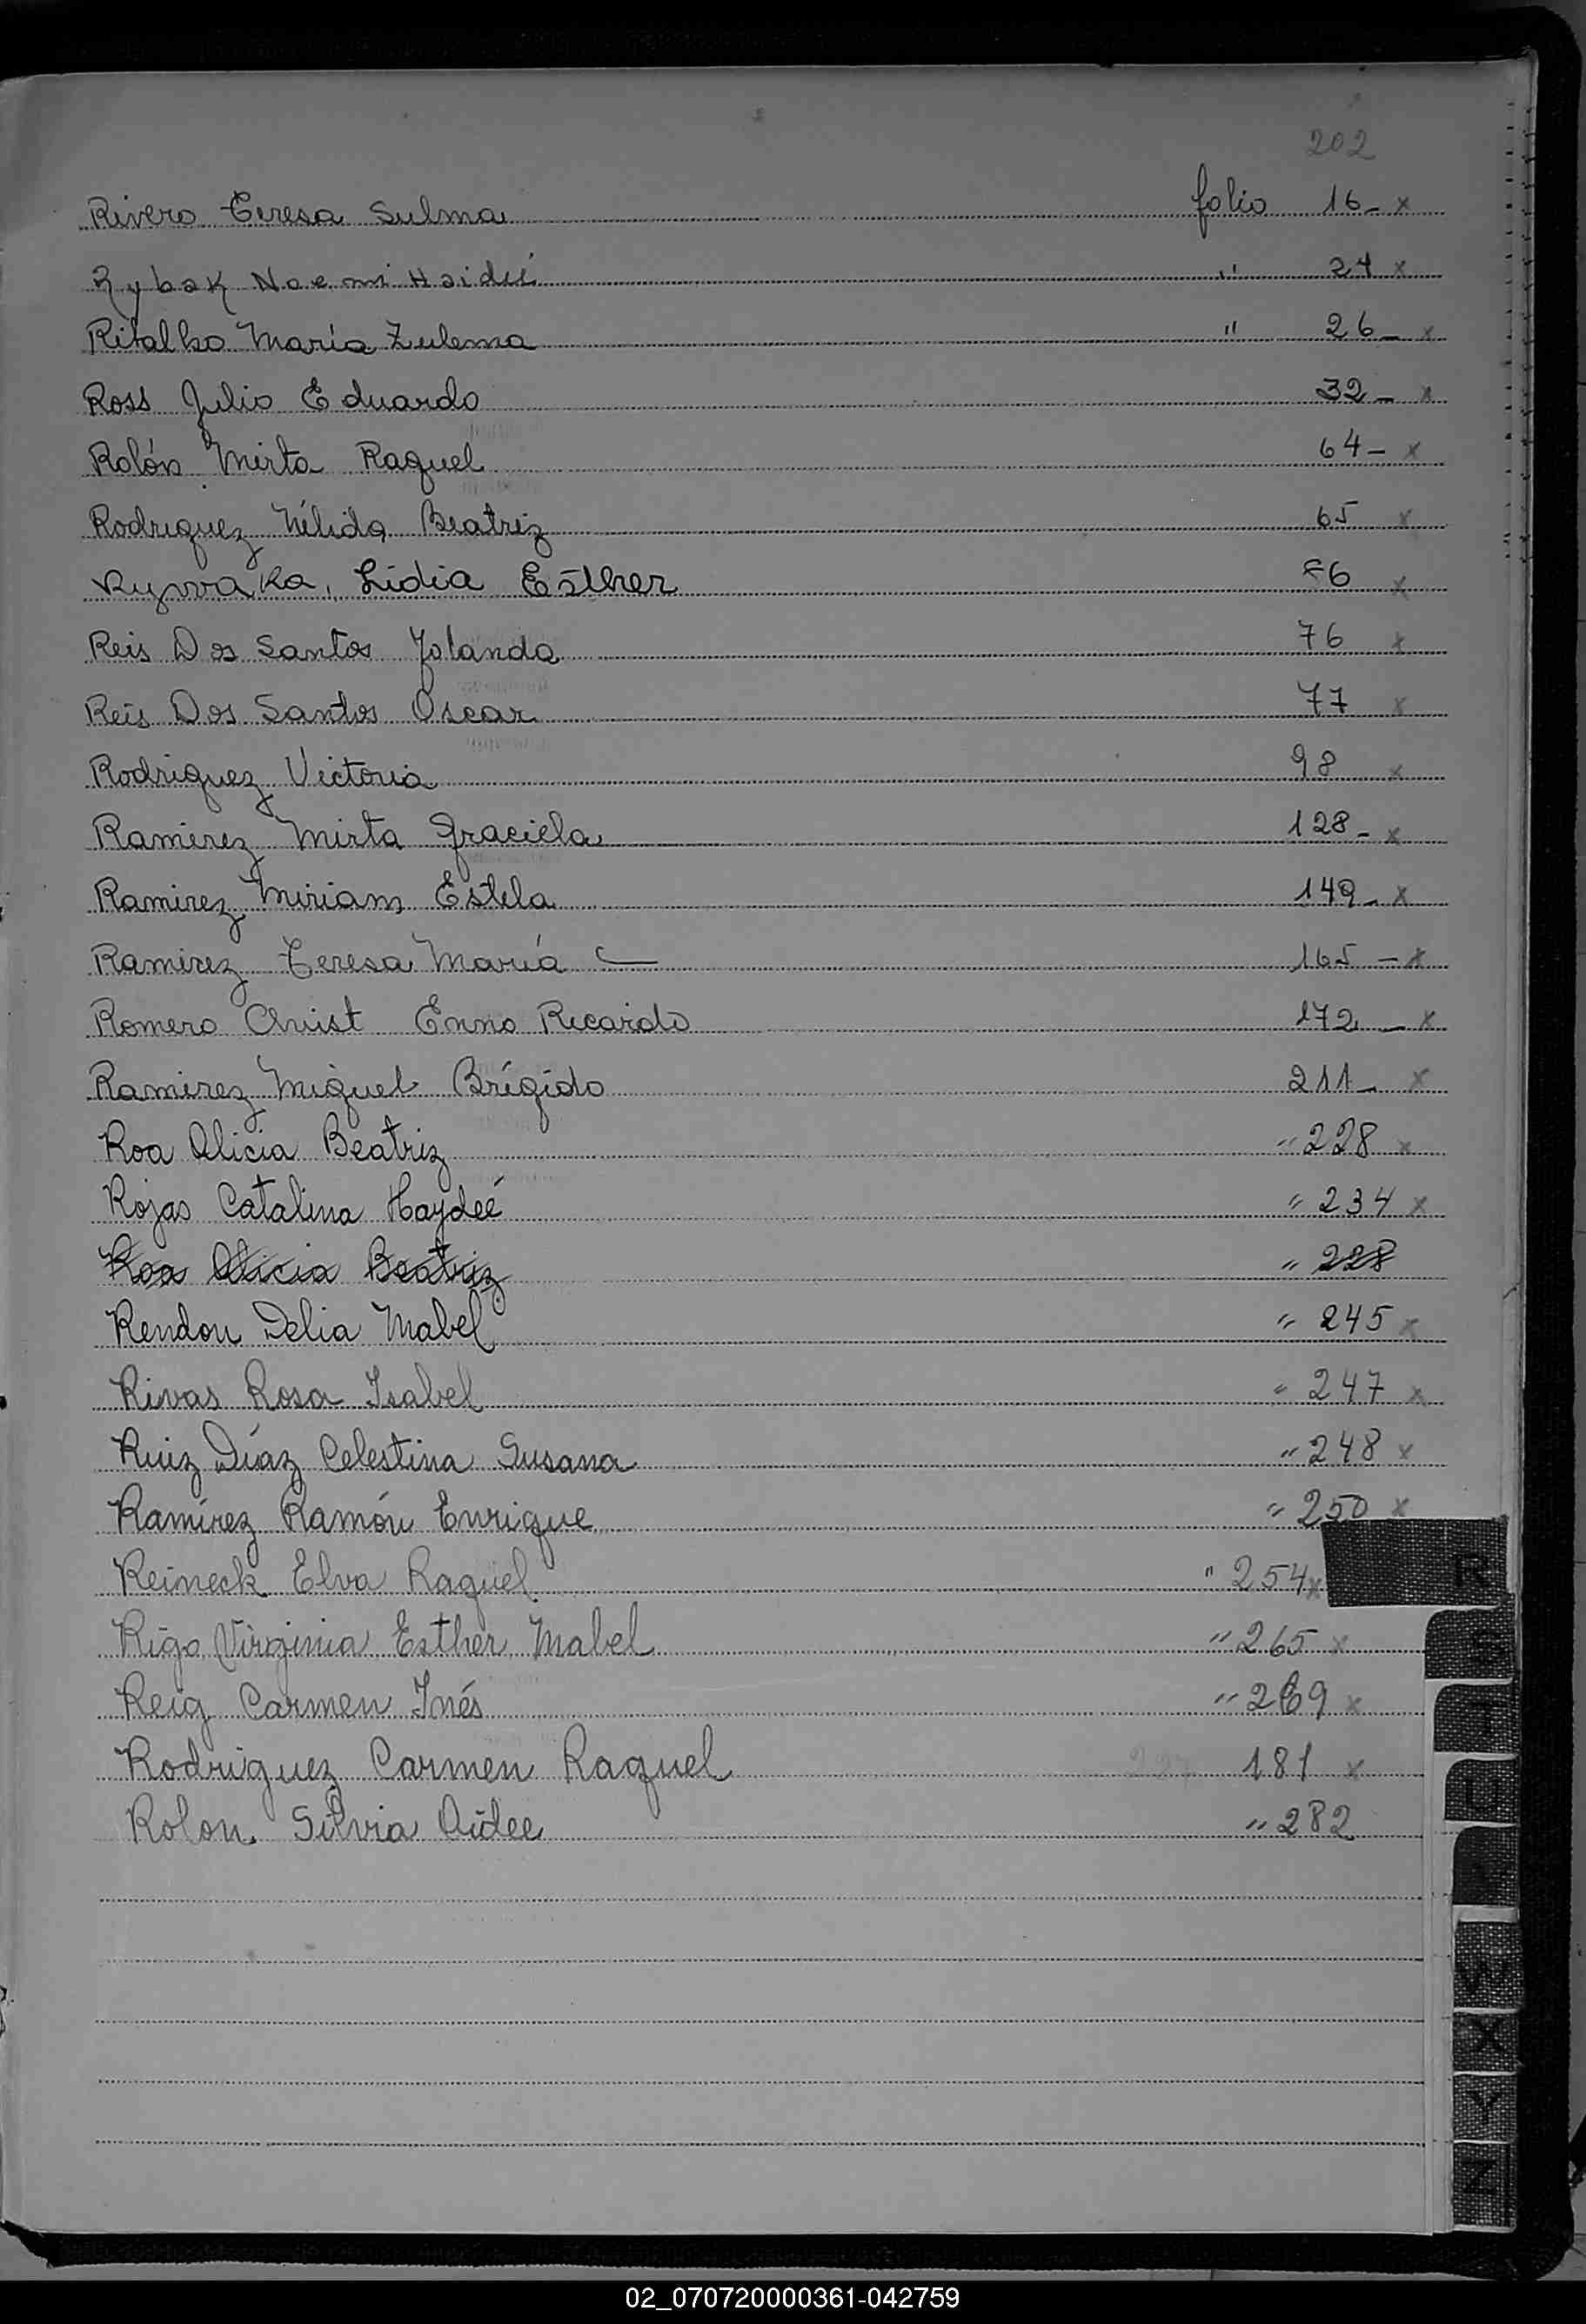 202
Rivero Teresa Sulma folio 16- x
Rybak Noemi Haideé " 24 x
Ritalho María Zulema " 26- x
Ross Julio Eduardo 32- x
Rolón Mirta Raquel 64- x
Rodriguez Nélida Beatriz 65 x
Lidia Esther 6 x
Reis Dos Santos Yolanda 76 x
Reis Dos Santos Oscar 77 x
Rodriguez Victoria 98 x
Ramirez Mirta Graciela 128- x
Ramirez Miriam Estela 149- x
Ramirez Teresa María 165- x
Romero Christ Enno Ricardo 172- x
Ramirez Miguel Brígido 211- x
Roa Alicia Beatriz " 228 x
Rojas Catalina Haydeé " 234 x
Roa Alicia Beatriz " 228
Rendon Delia Mabel " 245 x
Rivas Rosa Isabel " 247 x
Ruiz Díaz Celestina Susana " 248 x
Ramírez Ramón Enrique " 250 x
Reineck Elva Raquel " 254 x
Rigo Virginia Esther Mabel " 265 x
Reig Carmen Inés " 269 x
Rodriguez Carmen Raquel 181 x
Rolon Silvia Aidee " 282
R
S
T
U
W
X
Y
Z
02_070720000361-042759